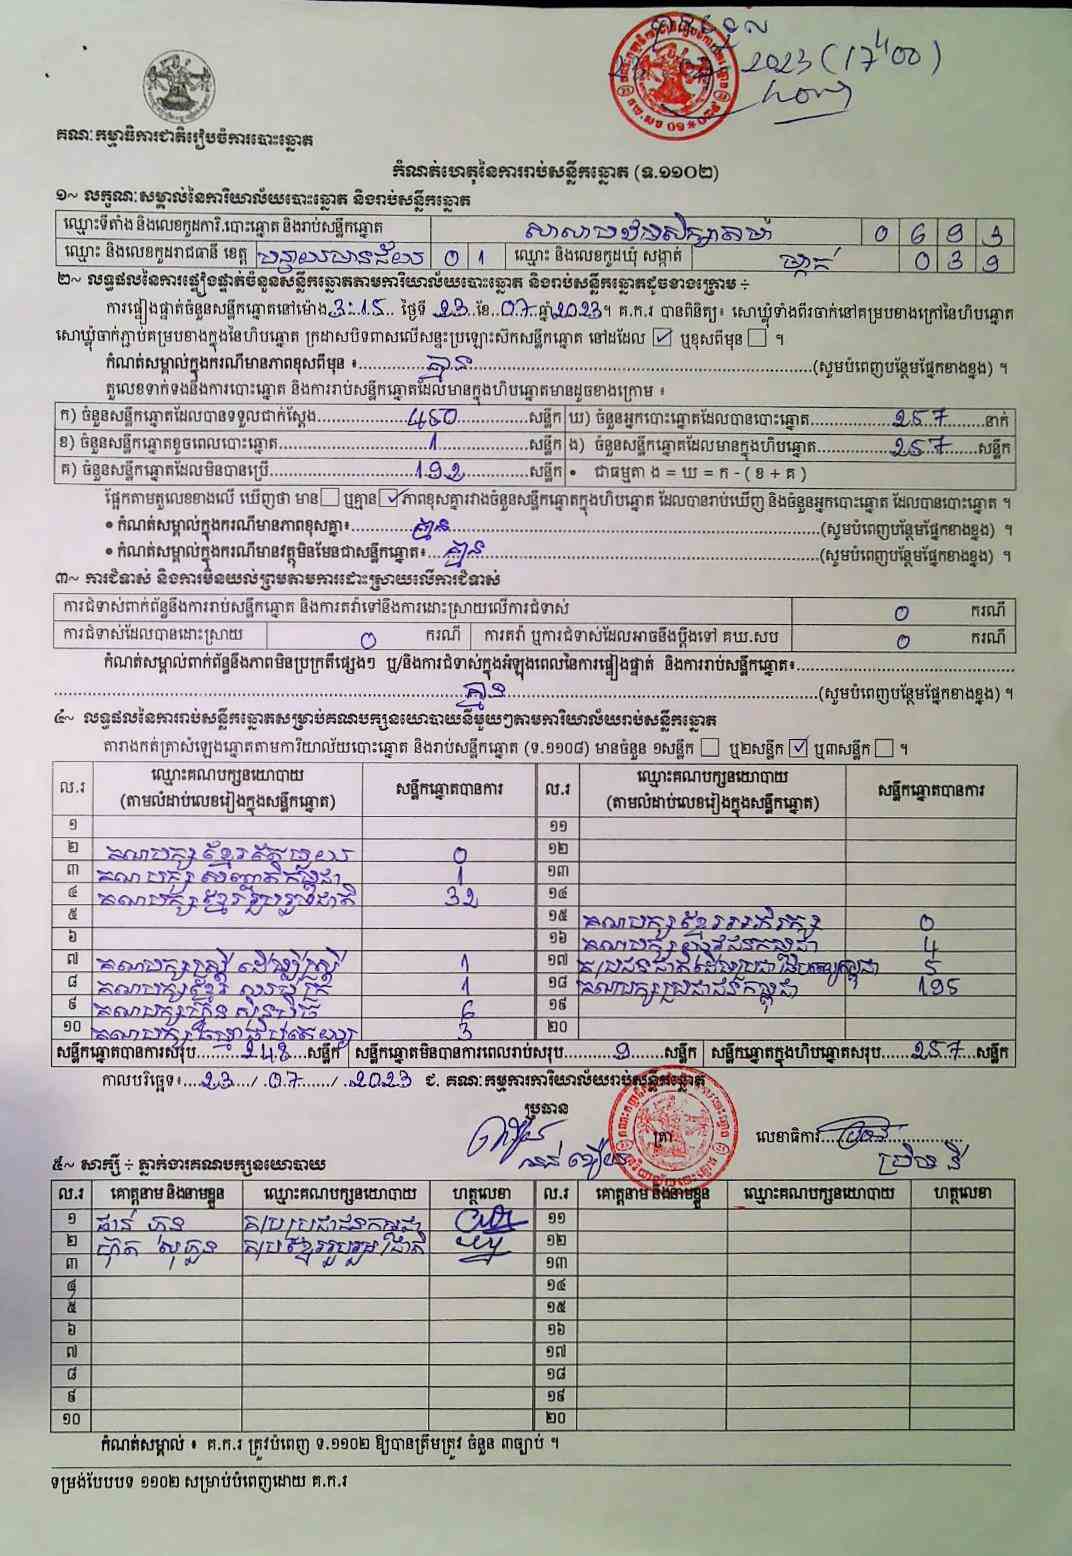 2023 (17:00)
គណៈកម្មាធិការជាតិរៀបចំការបោះឆ្នោត
កំណត់ហេតុនៃការរាប់សន្លឹកឆ្នោត (ទ.១១០២)
១~ លក្ខណៈសម្គាល់នៃការិយាល័យបោះឆ្នោត និងរាប់សន្លឹកឆ្នោត
ឈ្មោះទីតាំង និងលេខកូដការិ.បោះឆ្នោត និងរាប់សន្លឹកឆ្នោត 0 6 9 3
ឈ្មោះ និងលេខកូដរាជធានី ខេត្ត បន្ទាយមានជ័យ 0 1 ឈ្មោះ និងលេខកូដឃុំ សង្កាត់ ម្កាក់ 0 3 9
២~ លទ្ធផលនៃការផ្ទៀងផ្ទាត់ចំនួនសន្លឹកឆ្នោតតាមការិយាល័យបោះឆ្នោត និងរាប់សន្លឹកឆ្នោតដូចខាងក្រោម ÷
ការផ្ទៀងផ្ទាត់ចំនួនសន្លឹកឆ្នោតនៅម៉ោង 3:15 ថ្ងៃទី 23 ខែ 07 ឆ្នាំ 2023 ។ គ.ក.រ បានពិនិត្យ៖ សោឃ្លុំទាំងពីរចាក់នៅគម្របខាងក្រៅនៃហិបឆ្នោត
សោឃ្លុំចាក់ភ្ជាប់គម្របខាងក្នុងនៃហិបឆ្នោត ក្រដាសបិទពាសលើសន្ទះប្រឡោះស៊កសន្លឹកឆ្នោត នៅដដែល ☑ ឬខុសពីមុន ☐ ។
កំណត់សម្គាល់ក្នុងករណីមានភាពខុសពីមុន ៖ គ្មាន (សូមបំពេញបន្ថែមផ្នែកខាងខ្នង) ។
តួលេខទាក់ទងនឹងការបោះឆ្នោត និងការរាប់សន្លឹកឆ្នោតដែលមានក្នុងហិបឆ្នោតមានដូចខាងក្រោម ៖
ក) ចំនួនសន្លឹកឆ្នោតដែលបានទទួលជាក់ស្តែង 450 សន្លឹក ឃ) ចំនួនអ្នកបោះឆ្នោតដែលបានបោះឆ្នោត 257 នាក់
ខ) ចំនួនសន្លឹកឆ្នោតខូចពេលបោះឆ្នោត 1 សន្លឹក ង) ចំនួនសន្លឹកឆ្នោតដែលមានក្នុងហិបឆ្នោត 257 សន្លឹក
គ) ចំនួនសន្លឹកឆ្នោតដែលមិនបានប្រើ 192 សន្លឹក • ជាធម្មតា ង = ឃ = ក - ( ខ + គ )
ផ្អែកតាមតួលេខខាងលើ ឃើញថា មាន ☐ ឬគ្មាន ☑ ភាពខុសគ្នារវាងចំនួនសន្លឹកឆ្នោតក្នុងហិបឆ្នោត ដែលបានរាប់ឃើញ និងចំនួនអ្នកបោះឆ្នោត ដែលបានបោះឆ្នោត ។
• កំណត់សម្គាល់ក្នុងករណីមានភាពខុសគ្នា៖ គ្មាន (សូមបំពេញបន្ថែមផ្នែកខាងខ្នង) ។
• កំណត់សម្គាល់ក្នុងករណីមានវត្ថុមិនមែនជាសន្លឹកឆ្នោត៖ គ្មាន (សូមបំពេញបន្ថែមផ្នែកខាងខ្នង) ។
៣~ ការជំទាស់ និងការមិនយល់ព្រមតាមការដោះស្រាយលើការជំទាស់
ការជំទាស់ពាក់ព័ន្ធនឹងការរាប់សន្លឹកឆ្នោត និងការតវ៉ាទៅនឹងការដោះស្រាយលើការជំទាស់ 0 ករណី
ការជំទាស់ដែលបានដោះស្រាយ 0 ករណី ការតវ៉ា ឬការជំទាស់ដែលអាចនឹងប្តឹងទៅ គឃ.សប 0 ករណី
កំណត់សម្គាល់ពាក់ព័ន្ធនឹងភាពមិនប្រក្រតីផ្សេងៗ ឬ/និងការជំទាស់ក្នុងអំឡុងពេលនៃការផ្ទៀងផ្ទាត់ និងការរាប់សន្លឹកឆ្នោត៖
គ្មាន (សូមបំពេញបន្ថែមផ្នែកខាងខ្នង) ។
៤~ លទ្ធផលនៃការរាប់សន្លឹកឆ្នោតសម្រាប់គណបក្សនយោបាយនីមួយៗតាមការិយាល័យរាប់សន្លឹកឆ្នោត
តារាងកត់ត្រាសំឡេងឆ្នោតតាមការិយាល័យបោះឆ្នោត និងរាប់សន្លឹកឆ្នោត (ទ.១១០៨) មានចំនួន ១សន្លឹក ☐ ឬ២សន្លឹក ☑ ឬ៣សន្លឹក ☐ ។
ល.រ ឈ្មោះគណបក្សនយោបាយ (តាមលំដាប់លេខរៀងក្នុងសន្លឹកឆ្នោត) សន្លឹកឆ្នោតបានការ ល.រ ឈ្មោះគណបក្សនយោបាយ (តាមលំដាប់លេខរៀងក្នុងសន្លឹកឆ្នោត) សន្លឹកឆ្នោតបានការ
១ ១១
២ គណបក្ស ខ្មែរ 0 ១២
៣ គណបក្ស សញ្ជាតិកម្ពុជា 1 ១៣
៤ គណបក្ស ខ្មែររួបរួមជាតិ 32 ១៤
៥ ១៥ គណបក្ស ខ្មែរអភិរក្ស 0
៦ ១៦ គណបក្ស យុវជនកម្ពុជា 4
៧ គណបក្ស ស្ត្រី ដើម្បីស្ត្រី 1 ១៧ 5
៨ គណបក្ស ខ្មែរ 1 ១៨ គណបក្សប្រជាជនកម្ពុជា 195
៩ គណបក្សហ៊្វុនស៊ិនប៉ិច 6 ១៩
១០ គណបក្ស 3 ២០
សន្លឹកឆ្នោតបានការសរុប 248 សន្លឹក សន្លឹកឆ្នោតមិនបានការពេលរាប់សរុប 9 សន្លឹក សន្លឹកឆ្នោតក្នុងហិបឆ្នោតសរុប 257 សន្លឹក
កាលបរិច្ឆេទ៖ 23 / 07 / 2023 ជ. គណៈកម្មការការិយាល័យរាប់សន្លឹកឆ្នោត
ប្រធាន
ត្រា លេខាធិការ
៥~ សាក្សី ÷ ភ្នាក់ងារគណបក្សនយោបាយ
ល.រ គោត្តនាម និងនាមខ្លួន ឈ្មោះគណបក្សនយោបាយ ហត្ថលេខា ល.រ គោត្តនាម និងនាមខ្លួន ឈ្មោះគណបក្សនយោបាយ ហត្ថលេខា
១ គ/ប ប្រជាជនកម្ពុជា ១១
២ គ/ប ខ្មែររួបរួមជាតិ ១២
៣ ១៣
៤ ១៤
៥ ១៥
៦ ១៦
៧ ១៧
៨ ១៨
៩ ១៩
១០ ២០
កំណត់សម្គាល់ ៖ គ.ក.រ ត្រូវបំពេញ ទ.១១០២ ឱ្យបានត្រឹមត្រូវ ចំនួន ៣ច្បាប់ ។
ទម្រង់បែបបទ ១១០២ សម្រាប់បំពេញដោយ គ.ក.រ